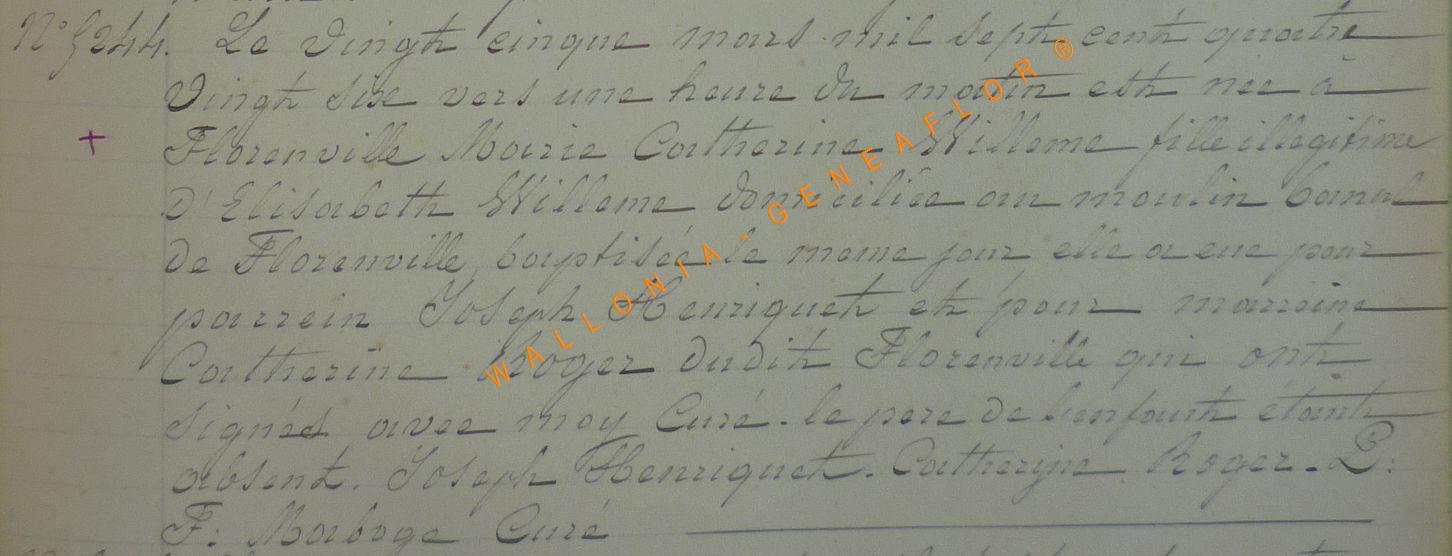 N° 5244. Le vingt cinque mars mil sept cent quatre
vingt sixe vers une heure du matin est nee à
Florenville Marie Catherine Willeme fille illegitime
d'Elisabeth Willeme domiciliée au moulin banal
de Florenville, baptisée le meme jour elle a eue pour
parrein Joseph Henriquet et pour marreine
Catherine Roger dudit Florenville qui ont
signés avec moy Curé. le pere de l'enfant étant
absent. Joseph Henriquet. Catherine Roger. P:
F: Maboge Curé
WALLONIA-GENEAFLOR®